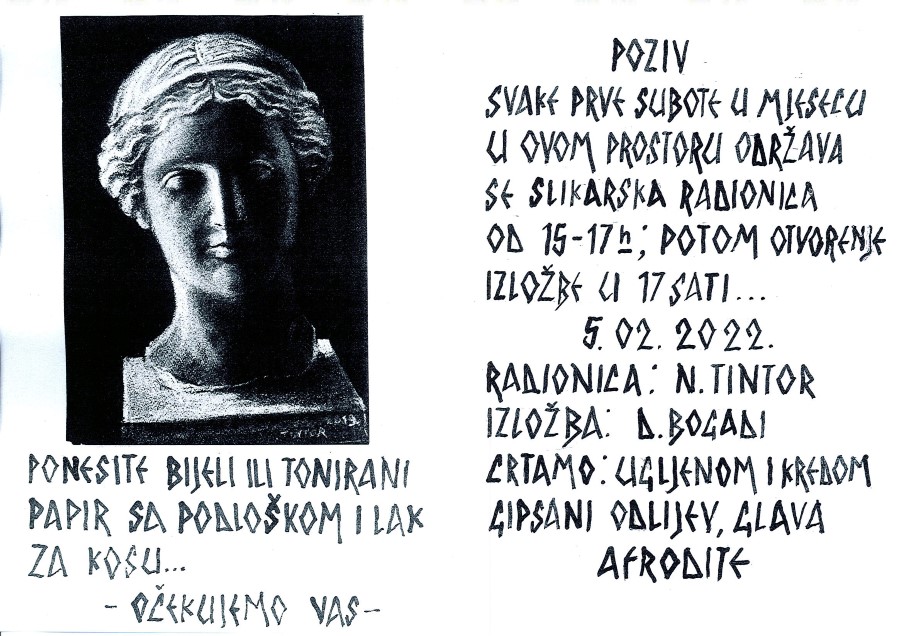 2019.
TINTOR
PONESITE BIJELI ILI TONIRANI
PAPIR SA PODLOŠKOM I LAK
ZA KOSU...
- OČEKUJEMO VAS -
POZIV
SVAKE PRVE SUBOTE U MJESECU
U OVOM PROSTORU ODRŽAVA
SE SLIKARSKA RADIONICA
OD 15-17h; POTOM OTVORENJE
IZLOŽBE U 17 SATI...
5. 02. 2022.
RADIONICA: N. TINTOR
IZLOŽBA: D. BOGADI
CRTAMO: UGLJENOM I KREDOM
GIPSANI ODLIJEV, GLAVA
AFRODITE